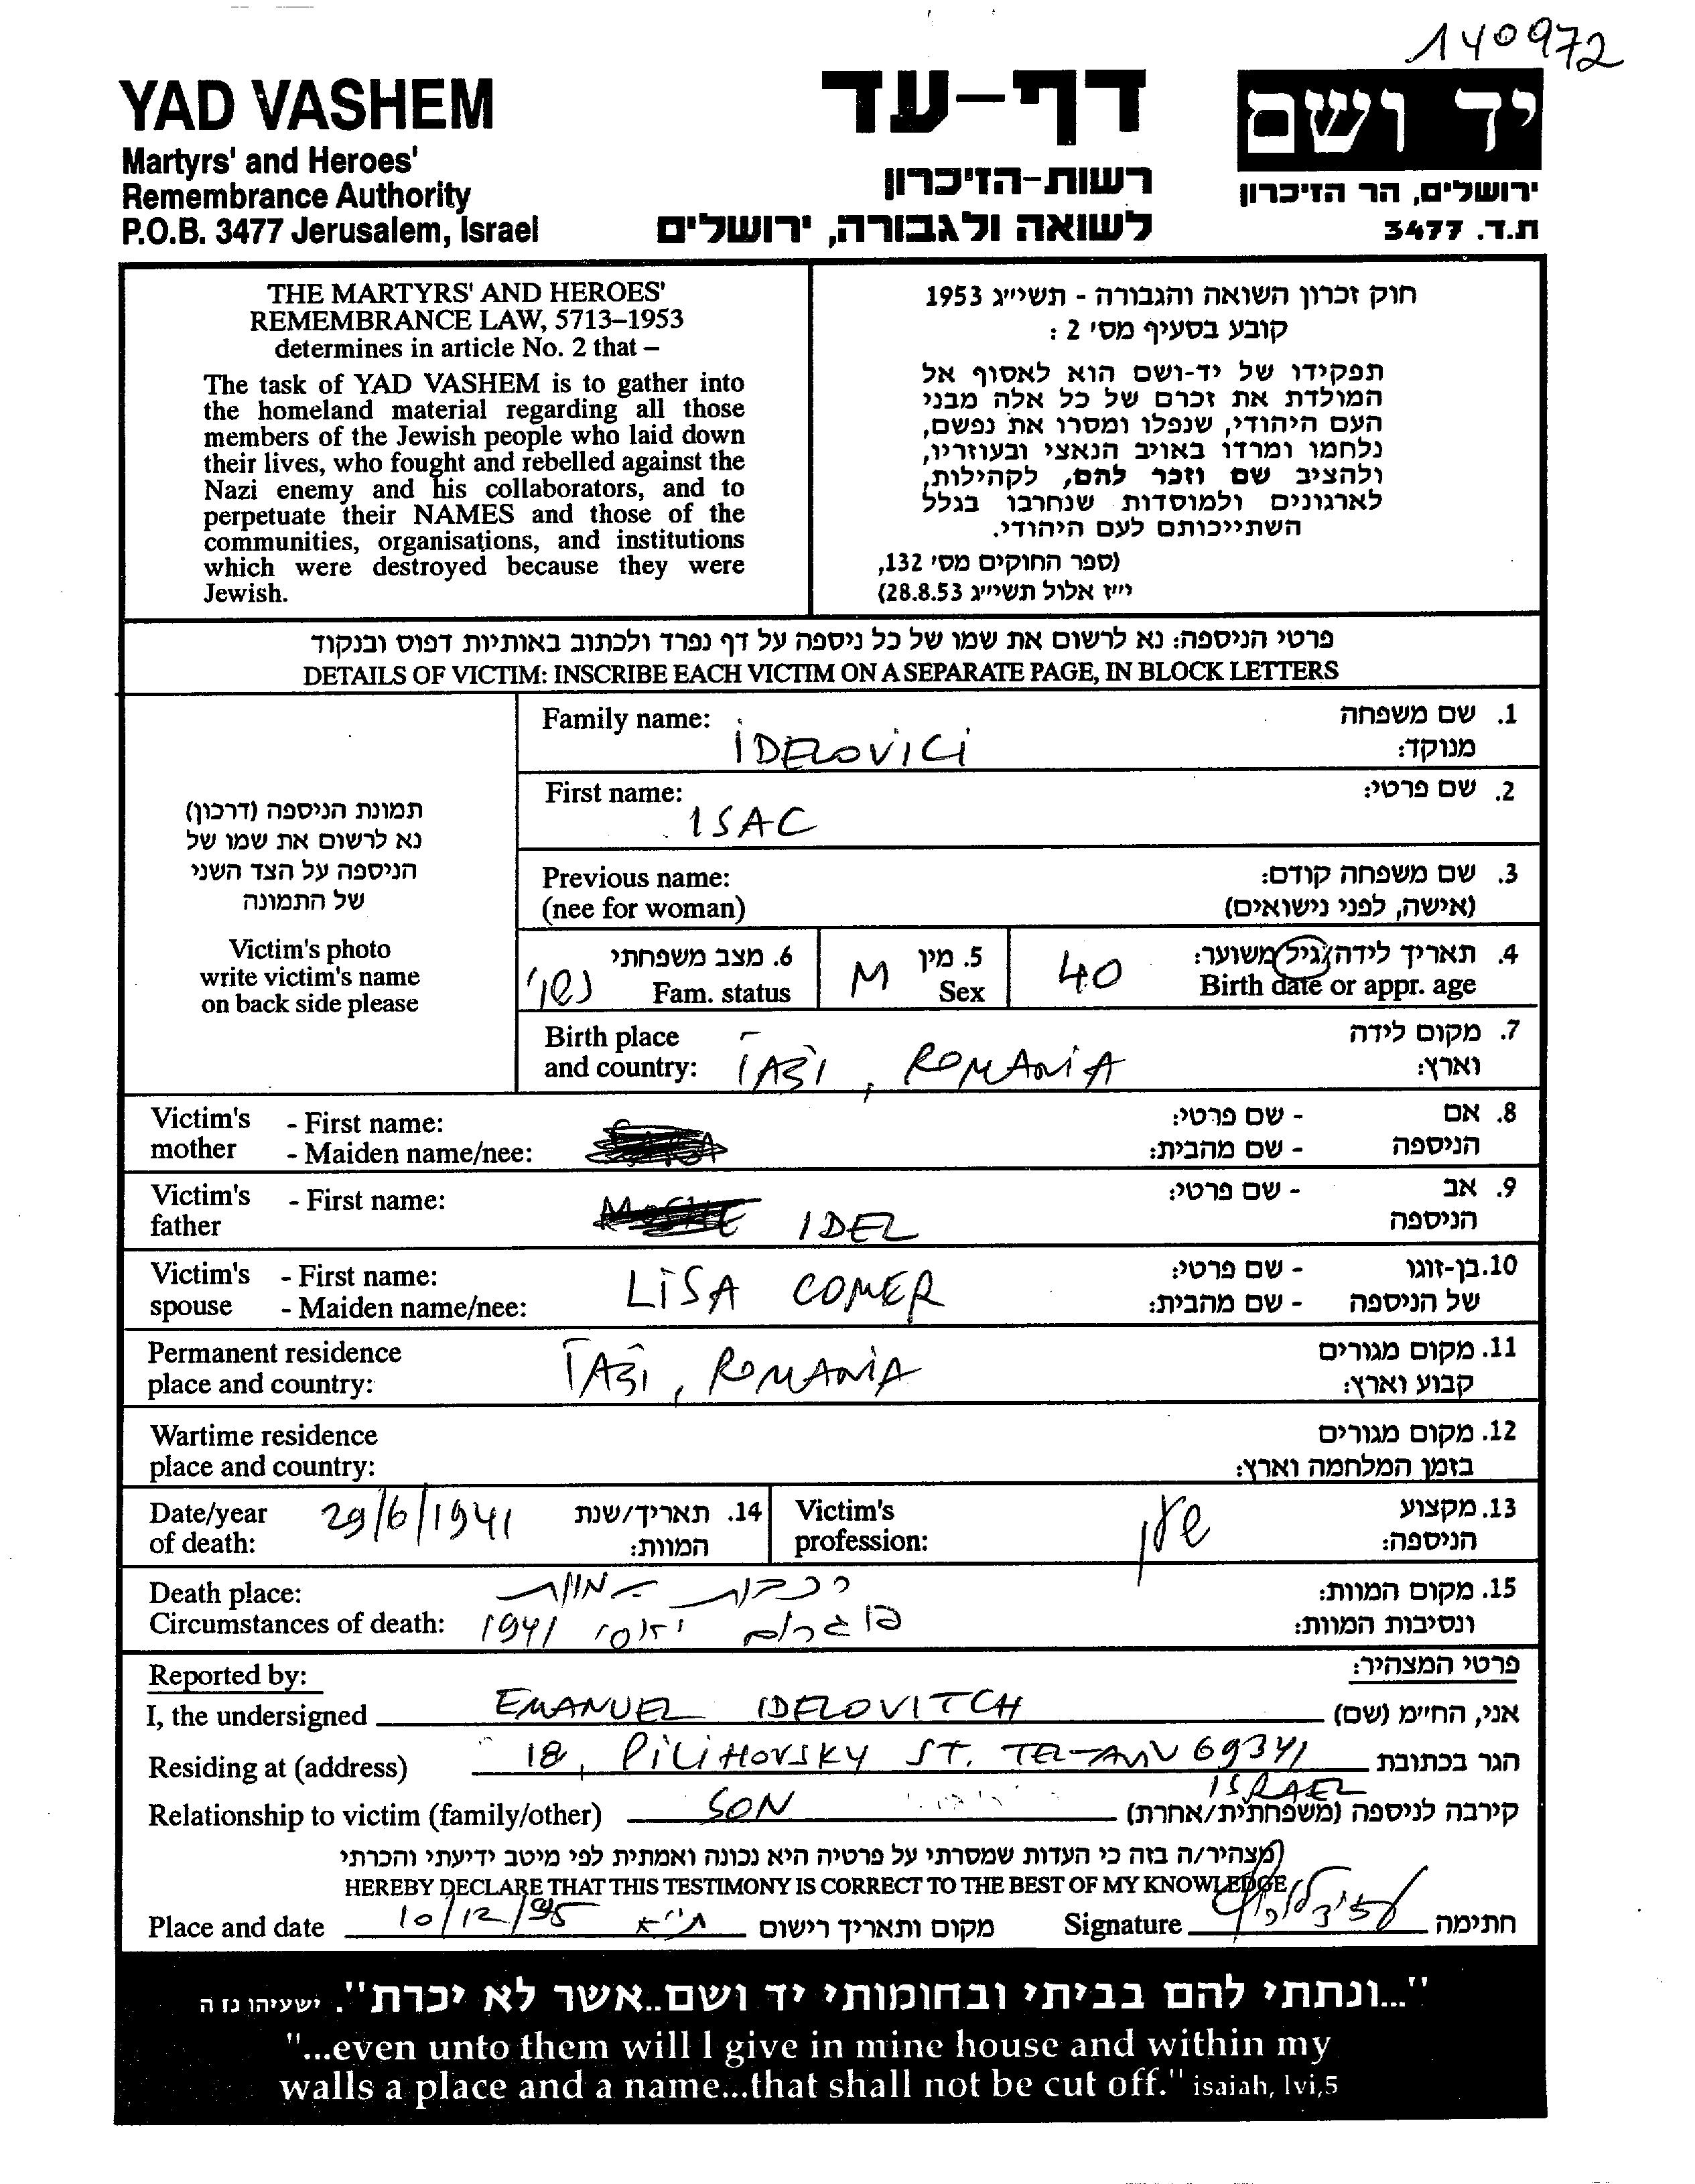 140972
YAD VASHEM
Martyrs' and Heroes'
Remembrance Authority
P.O.B. 3477 Jerusalem, Israel
דף-עד
רשות-הזיכרון
לשואה ולגבורה, ירושלים
יד ושם
ירושלים, הר הזיכרון
ת.ד. 3477
THE MARTYRS' AND HEROES'
REMEMBRANCE LAW, 5713–1953
determines in article No. 2 that –
The task of YAD VASHEM is to gather into
the homeland material regarding all those
members of the Jewish people who laid down
their lives, who fought and rebelled against the
Nazi enemy and his collaborators, and to
perpetuate their NAMES and those of the
communities, organisations, and institutions
which were destroyed because they were
Jewish.
חוק זכרון השואה והגבורה - תשי״ג 1953
קובע בסעיף מס׳ 2 :
תפקידו של יד-ושם הוא לאסוף אל
המולדת את זכרם של כל אלה מבני
העם היהודי, שנפלו ומסרו את נפשם,
נלחמו ומרדו באויב הנאצי ובעוזריו,
ולהציב שם וזכר להם, לקהילות,
לארגונים ולמוסדות שנחרבו בגלל
השתייכותם לעם היהודי.
(ספר החוקים מס׳ 132,
י״ז אלול תשי״ג 28.8.53)
פרטי הניספה: נא לרשום את שמו של כל ניספה על דף נפרד ולכתוב באותיות דפוס ובנקוד
DETAILS OF VICTIM: INSCRIBE EACH VICTIM ON A SEPARATE PAGE, IN BLOCK LETTERS
תמונת הניספה (דרכון)
נא לרשום את שמו של
הניספה על הצד השני
של התמונה
Victim's photo
write victim's name
on back side please
Family name: IDELOVICI 1. שם משפחה
מנוקד:
First name: ISAC 2. שם פרטי:
Previous name: 3. שם משפחה קודם:
(nee for woman) (אישה, לפני נישואים)
נשוי 6. מצב משפחתי M 5. מין 40 4. תאריך לידה/גיל משוער:
Fam. status Sex Birth date or appr. age
Birth place 7. מקום לידה
and country: IAŞI, ROMANIA וארץ:
Victim's - First name: - שם פרטי: 8. אם
mother - Maiden name/nee: - שם מהבית: הניספה
Victim's - First name: - שם פרטי: 9. אב
father IDEL הניספה
Victim's - First name: LISA COMER - שם פרטי: 10. בן-זוגו
spouse - Maiden name/nee: - שם מהבית: של הניספה
Permanent residence 11. מקום מגורים
place and country: IAŞI, ROMANIA קבוע וארץ:
Wartime residence 12. מקום מגורים
place and country: בזמן המלחמה וארץ:
Date/year 29/6/1941 14. תאריך/שנת Victim's שען 13. מקצוע
of death: המוות: profession: הניספה:
Death place: רכבת המוות 15. מקום המוות:
Circumstances of death: פוגרום יאסי 1941 ונסיבות המוות:
Reported by: פרטי המצהיר:
I, the undersigned EMANUEL IDELOVITCH אני, החי״מ (שם)
Residing at (address) 18, PILIHOVSKY ST. TEL-AVIV 69341 הגר בכתובת
ISRAEL
Relationship to victim (family/other) SON קירבה לניספה (משפחתית/אחרת)
מצהיר/ה בזה כי העדות שמסרתי על פרטיה היא נכונה ואמתית לפי מיטב ידיעתי והכרתי
HEREBY DECLARE THAT THIS TESTIMONY IS CORRECT TO THE BEST OF MY KNOWLEDGE
Place and date 10/12/95 ת״א מקום ותאריך רישום Signature חתימה
"...ונתתי להם בביתי ובחומותי יד ושם..אשר לא יכרת". ישעיהו נז ה
"...even unto them will I give in mine house and within my
walls a place and a name...that shall not be cut off." isaiah, lvi,5